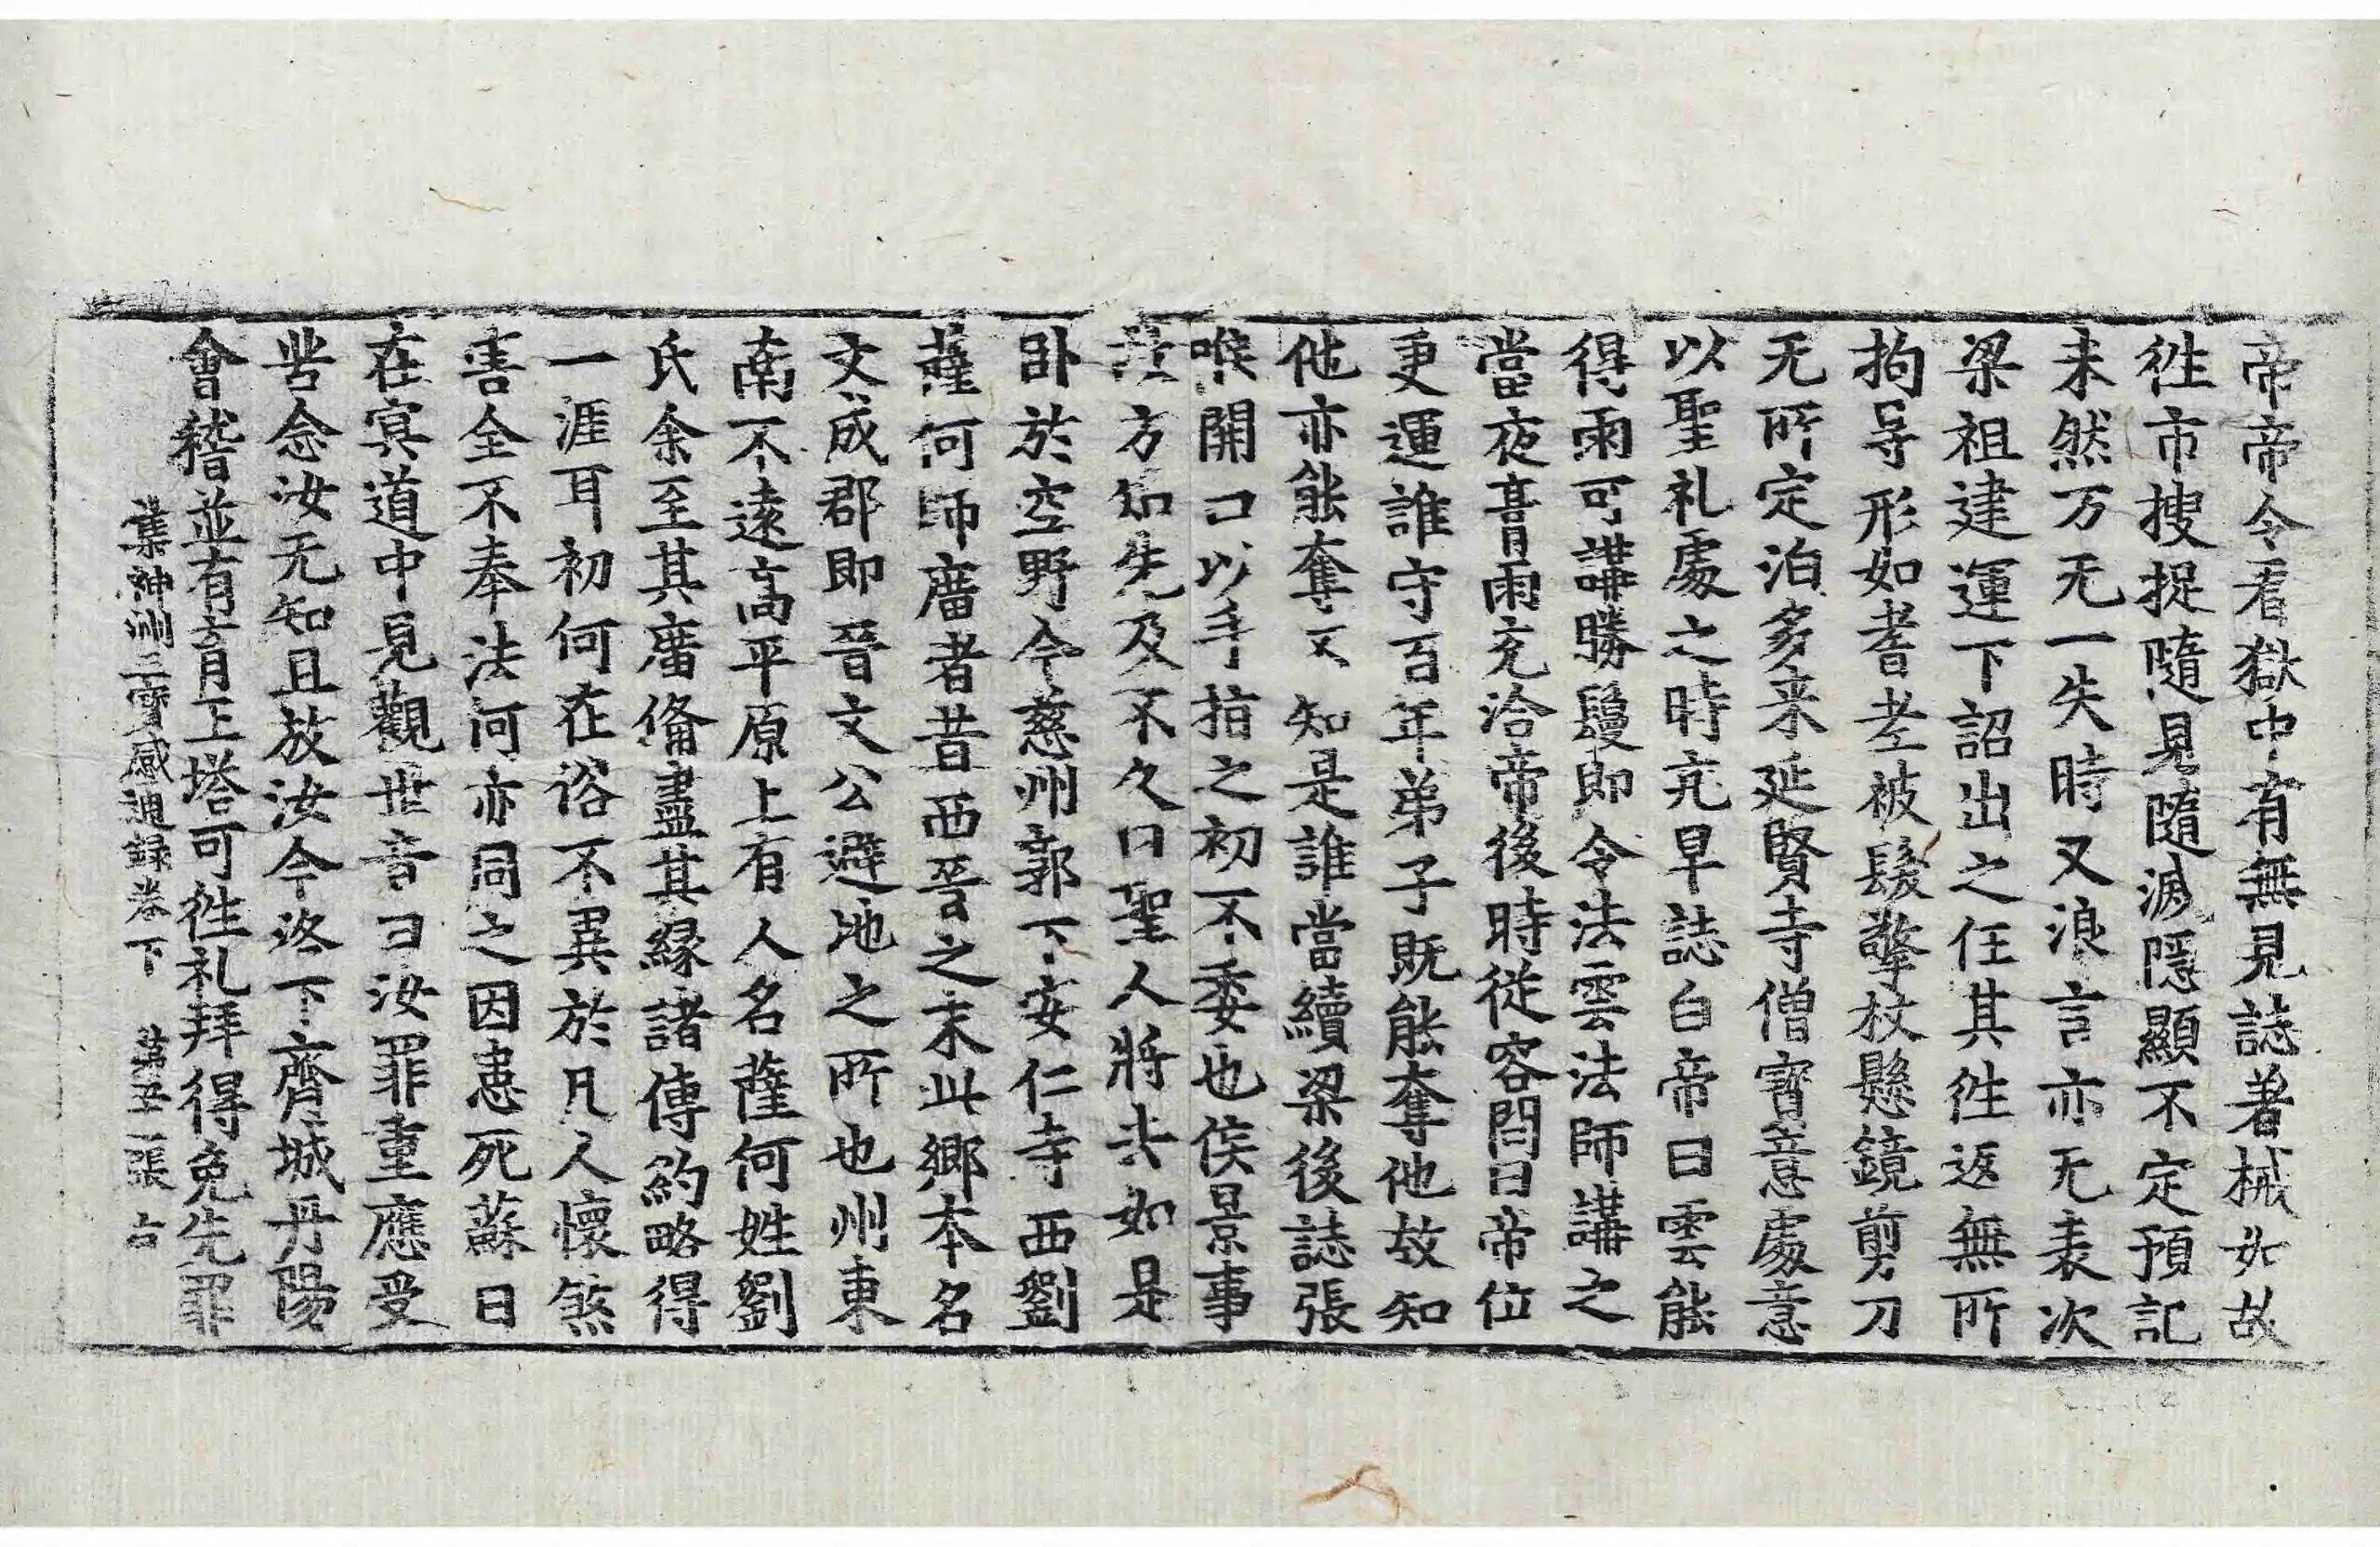 帝帝令看獄中有無見誌著械如故
徃市搜捉隨見隨滅隱顯不定預記
未然万无一失時又浪言亦无表次
梁祖建運下詔出之任其徃返無所
拘导形如耆老被髮擎杖懸鏡剪刀
无所定泊多來延賢寺僧寶意處意
以聖礼處之時亢旱誌白帝曰雲能
得雨可講勝鬘即令法雲法師講之
當夜膏雨充洽帝後時従容問曰帝位
更運誰守百年弟子既能奪他故知
他亦能奪不知是誰當續梁後誌張
喉開口以手指之初不委也侯景事
方知先及不久曰聖人將去如是
卧於空野今慈州郭下安仁寺西劉
薩何師廟者昔西晉之末此鄉本名
文成郡即晉文公避地之所也州東
南不遠高平原上有人名薩何姓劉
氏余至其廟俻盡其緣諸傳約略得
一涯耳初何在俗不異於凡人懷煞
害全不奉法何亦同之因患死蘇曰
在冥道中見觀世音曰汝罪重應受
苦念汝无知且放汝今洛下齊城丹陽
會稽並有育王塔可徃礼拜得免先罪
集神州三寶感通錄卷下 第五張 古